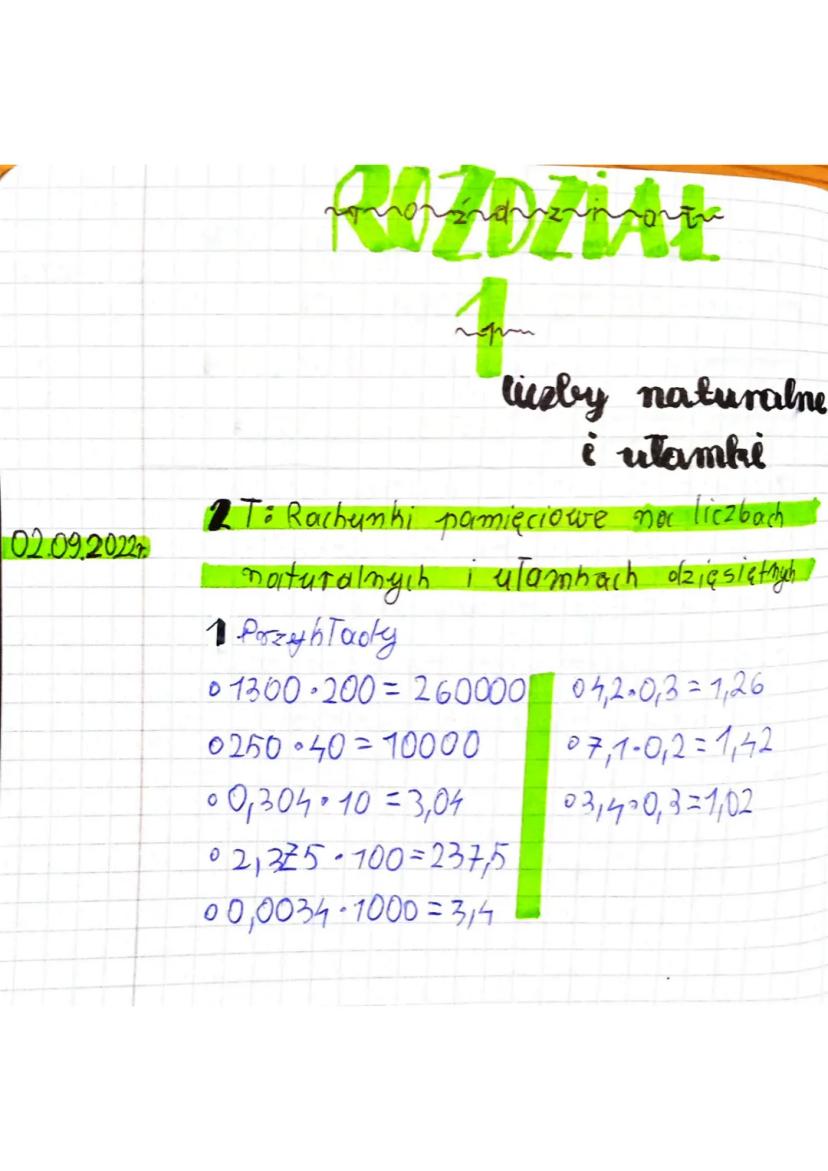 ROŹDZIAŁ
roździał
1
1
liczby naturalne
i ułamki
2 T: Rachunki pamięciowe na liczbach
02.09.2022r.
naturalnych i ułamkach dzięsiętnych
1 Przykłady
o 1300 · 200 = 260000
o 250 · 40 = 10000
o 0,304 · 10 = 3,04
o 2,375 · 100 = 237,5
o 0,0034 · 1000 = 3,4
o 4,2 · 0,3 = 1,26
o 7,1 · 0,2 = 1,42
o 3,4 · 0,3 = 1,02